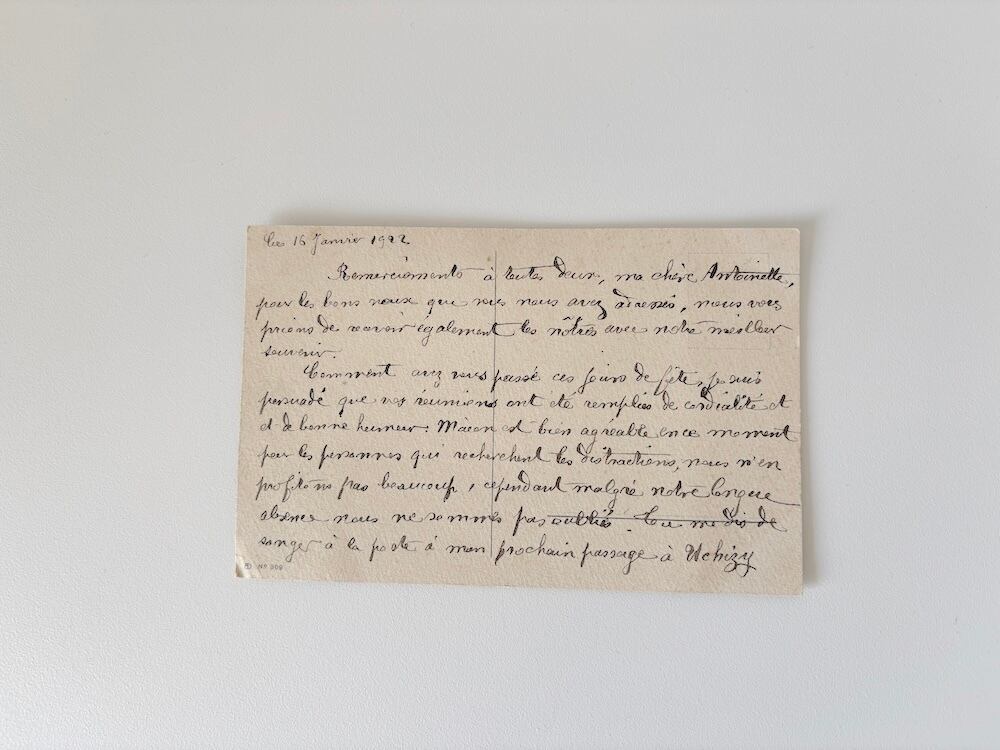 Le 16 Janvier 1922
Remerciements à toutes deux, ma chère Antoinette,
pour les bons vœux que vous nous avez adressés, nous vous
prions de recevoir également les nôtres avec notre meilleur
souvenir.
Comment avez vous passé ces jours de fête, je suis
persuadé que vos réunions ont été remplies de cordialité et
et de bonne humeur. Mâcon est bien agréable en ce moment
pour les personnes qui recherchent les distractions, nous n'en
profitons pas beaucoup, cependant malgré notre longue
absence nous ne sommes pas oubliés. Tu me dis de
songer à la poste à mon prochain passage à Uchizy
N° 909